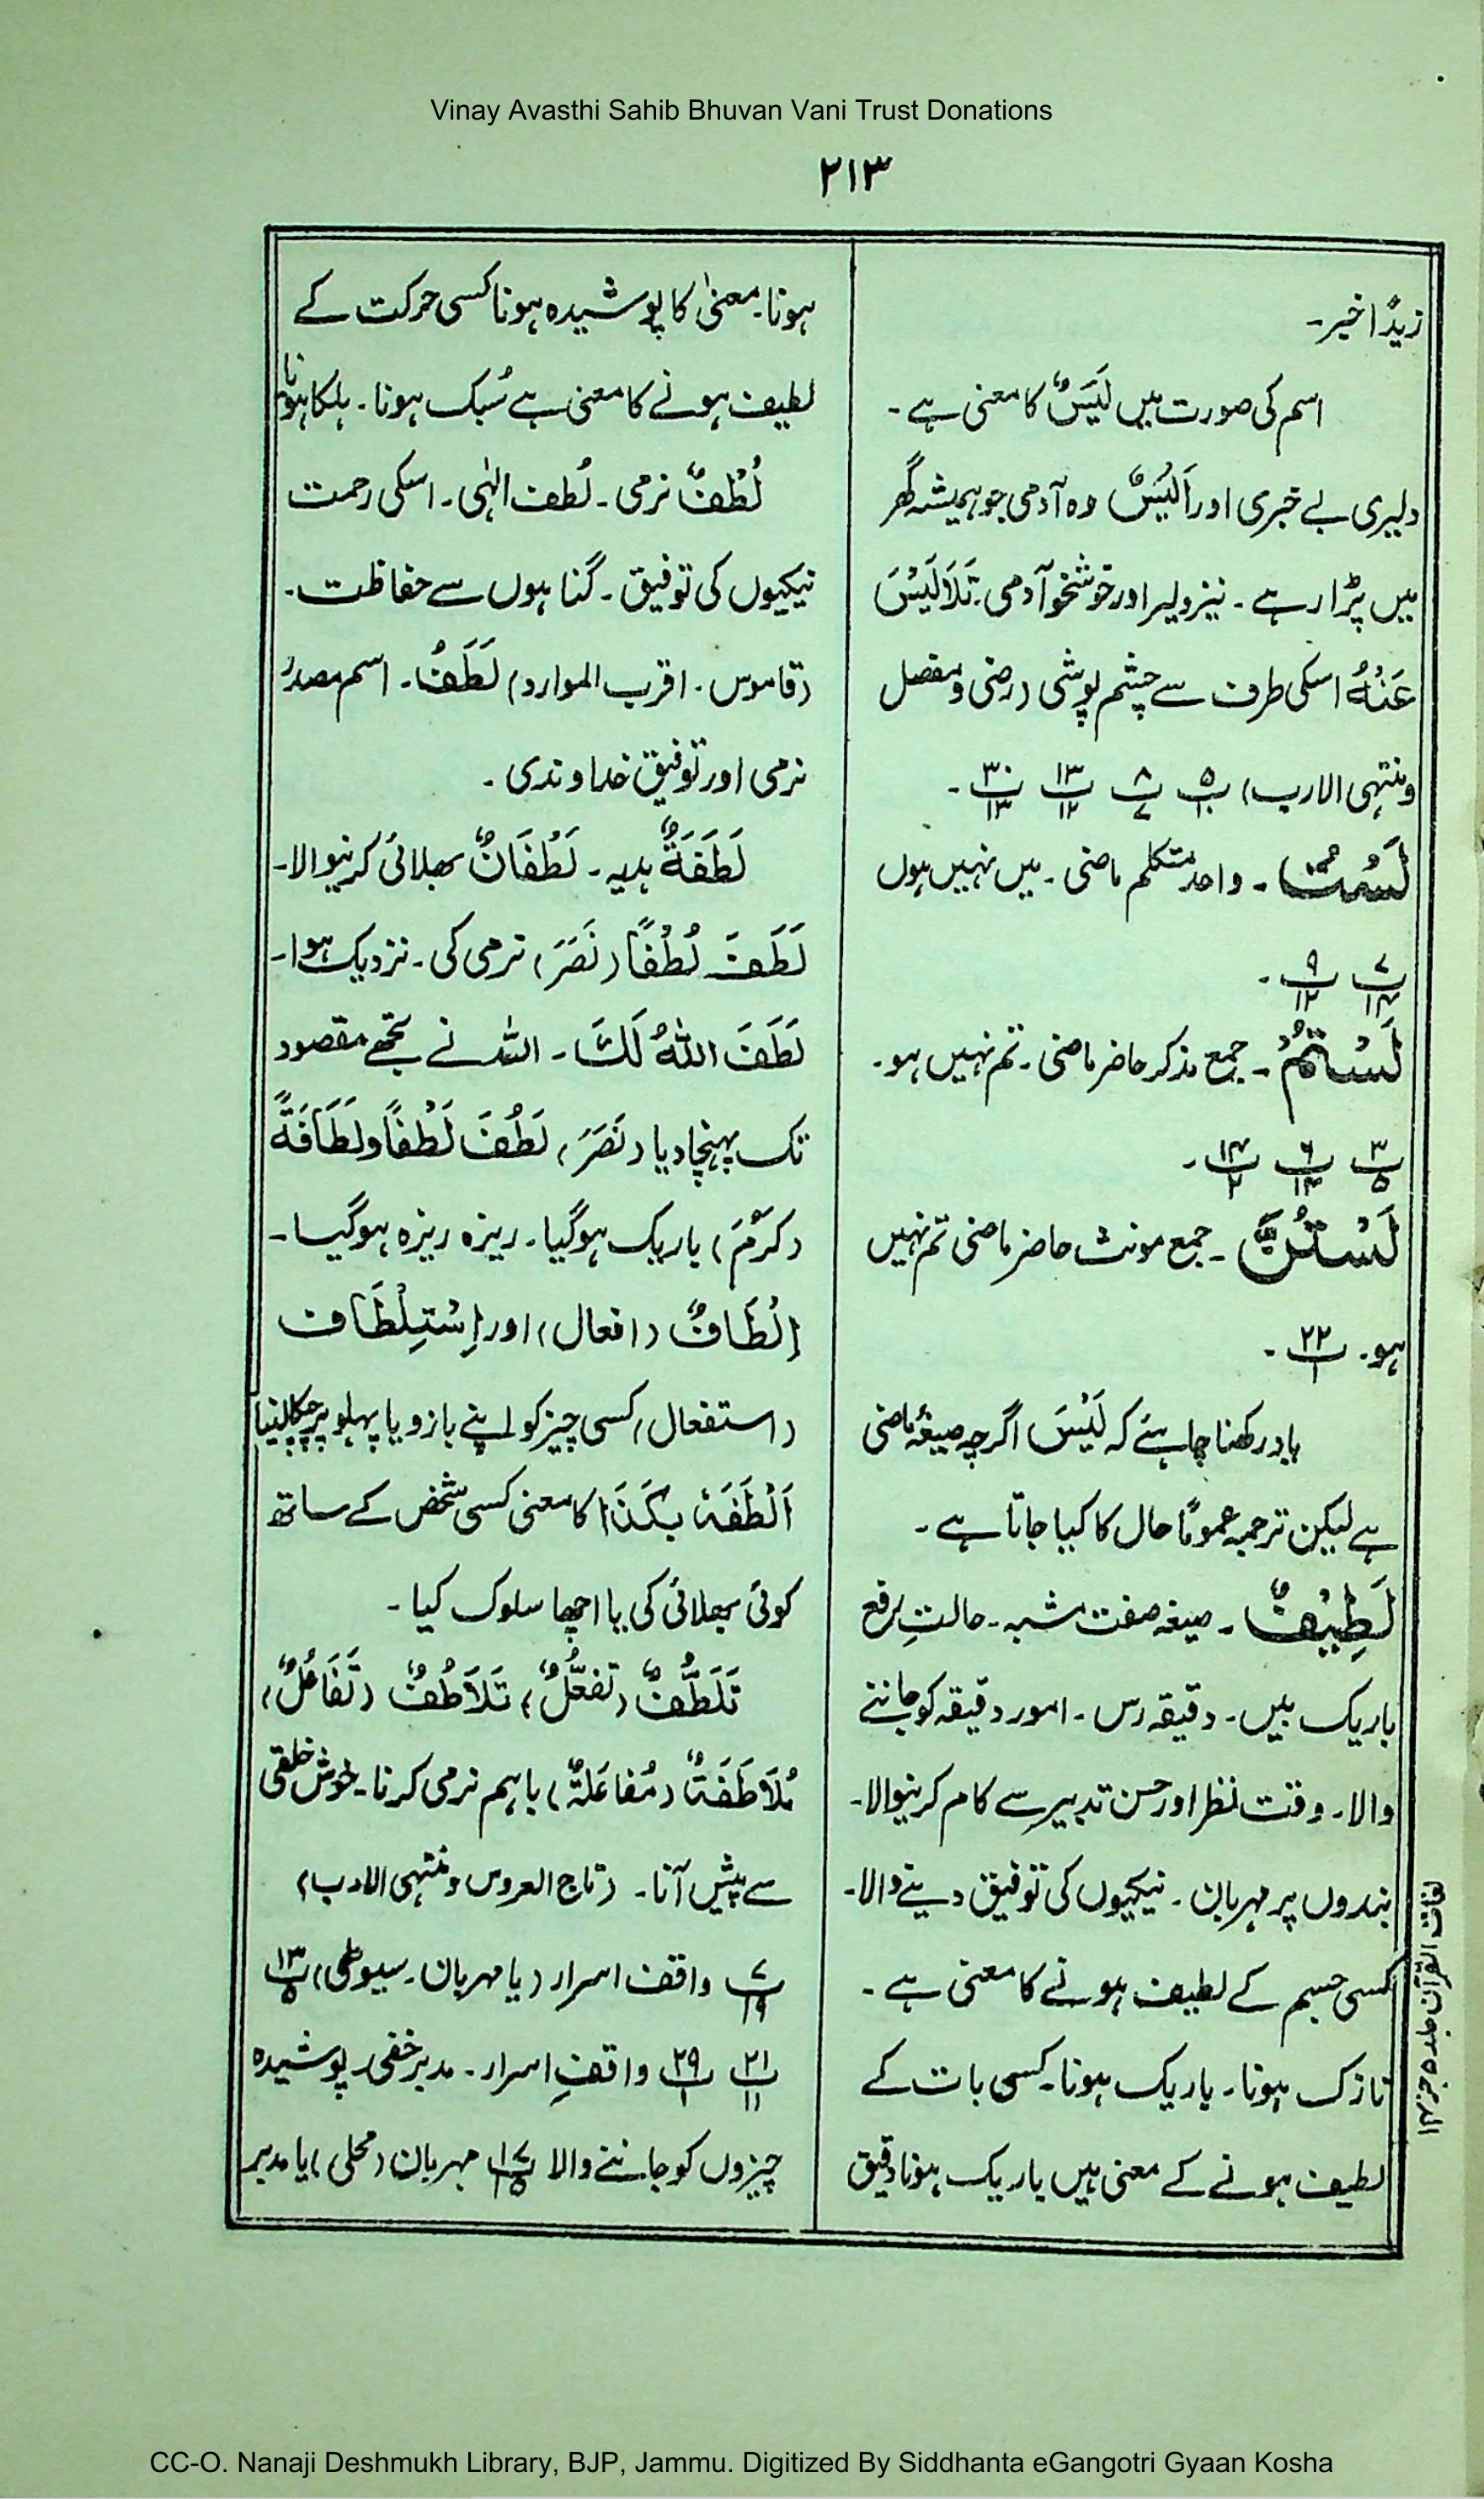 Vinay Avasthi Sahib Bhuvan Vani Trust Donations
۲۱۳
زیدًا خیر۔
اسم کی صورت میں لَیَسٌ کا معنی ہے۔
دلیری بے خبری اور اَلْیَسٌ وہ آدمی جو ہمیشہ گھر
میں پڑا رہے۔ نیز دلیر اور خوشخو آدمی۔ تَلَالَیَسَ
عَنْہُ اسکی طرف سے چشم پوشی (رضی و مفصل
و منتہی الارب)
لَسْتُ۔ واحد متکلم ماضی۔ میں نہیں ہوں
لَسْتُمْ۔ جمع مذکر حاضر ماضی۔ تم نہیں ہو۔
لَسْتُنَّ۔ جمع مونث حاضر ماضی تم نہیں
ہو۔ ۲۲ پ ۱۔
یاد رکھنا چاہئے کہ لَیْسَ اگرچہ صیغۂ ماضی
ہے لیکن ترجمہ عمومًا حال کا کیا جاتا ہے۔
لَطِیْفٌ۔ صیغہ صفت مشبہ۔ حالتِ رفع
باریک بیں۔ دقیقہ رس۔ امور دقیقہ کو جاننے
والا۔ دقت نظر اور حسن تدبیر سے کام کرنیوالا۔
بندوں پر مہربان۔ نیکیوں کی توفیق دینے والا۔
کسی جسم کے لطیف ہونے کا معنی ہے۔
نازک ہونا۔ باریک ہونا۔ کسی بات کے
لطیف ہونے کے معنی ہیں باریک ہونا دقیق
ہونا۔ معنیٰ کا پوشیدہ ہونا کسی حرکت کے
لطیف ہونے کا معنی ہے سُبک ہونا۔ ہلکا ہونا
لُطْفٌ نرمی۔ لُطف الٰہی۔ اسکی رحمت
نیکیوں کی توفیق۔ گناہوں سے حفاظت۔
(قاموس۔ اقرب الموارد) لَطَفٌ۔ اسم مصدر
نرمی اور توفیق خداوندی۔
لَطَفَۃٌ ہدیہ۔ لَطْفَانٌ بھلائی کرنیوالا۔
لَطَفَ لُطْفًا (نَصَرَ) نرمی کی۔ نزدیک ہوا۔
لَطَفَ اللہُ لَکَ۔ اللہ نے تجھے مقصود
تک پہنچا دیا (نَصَرَ) لَطُفَ لَطْفًا ولَطَافَۃً
(کَرُمَ) باریک ہوگیا۔ ریزہ ریزہ ہوگیا۔
اِلْطَافٌ (افعال) اور اِسْتِلْطَاف
(استفعال) کسی چیز کو اپنے بازو یا پہلو پر چپکا لینا
اَلْطَفَہٗ بِکَذَا کا معنی کسی شخص کے ساتھ
کوئی بھلائی کی یا اچھا سلوک کیا۔
تَلَطُّفٌ (تَفَعُّلٌ) تَلَاطُفٌ (تَفَاعُلٌ)
مُلَاطَفَۃٌ (مُفَاعَلَۃٌ) باہم نرمی کرنا۔ خوش خلقی
سے پیش آنا۔ (تاج العروس و منتہی الارب)
واقف اسرار (یا مہربان۔ سیوطی)
واقفِ اسرار۔ مدبر خفی۔ پوشیدہ
چیزوں کو جاننے والا مہربان (محلی) یا مدبر
لغات القرآن جلد ۵ جز
CC-O. Nanaji Deshmukh Library, BJP, Jammu. Digitized By Siddhanta eGangotri Gyaan Kosha